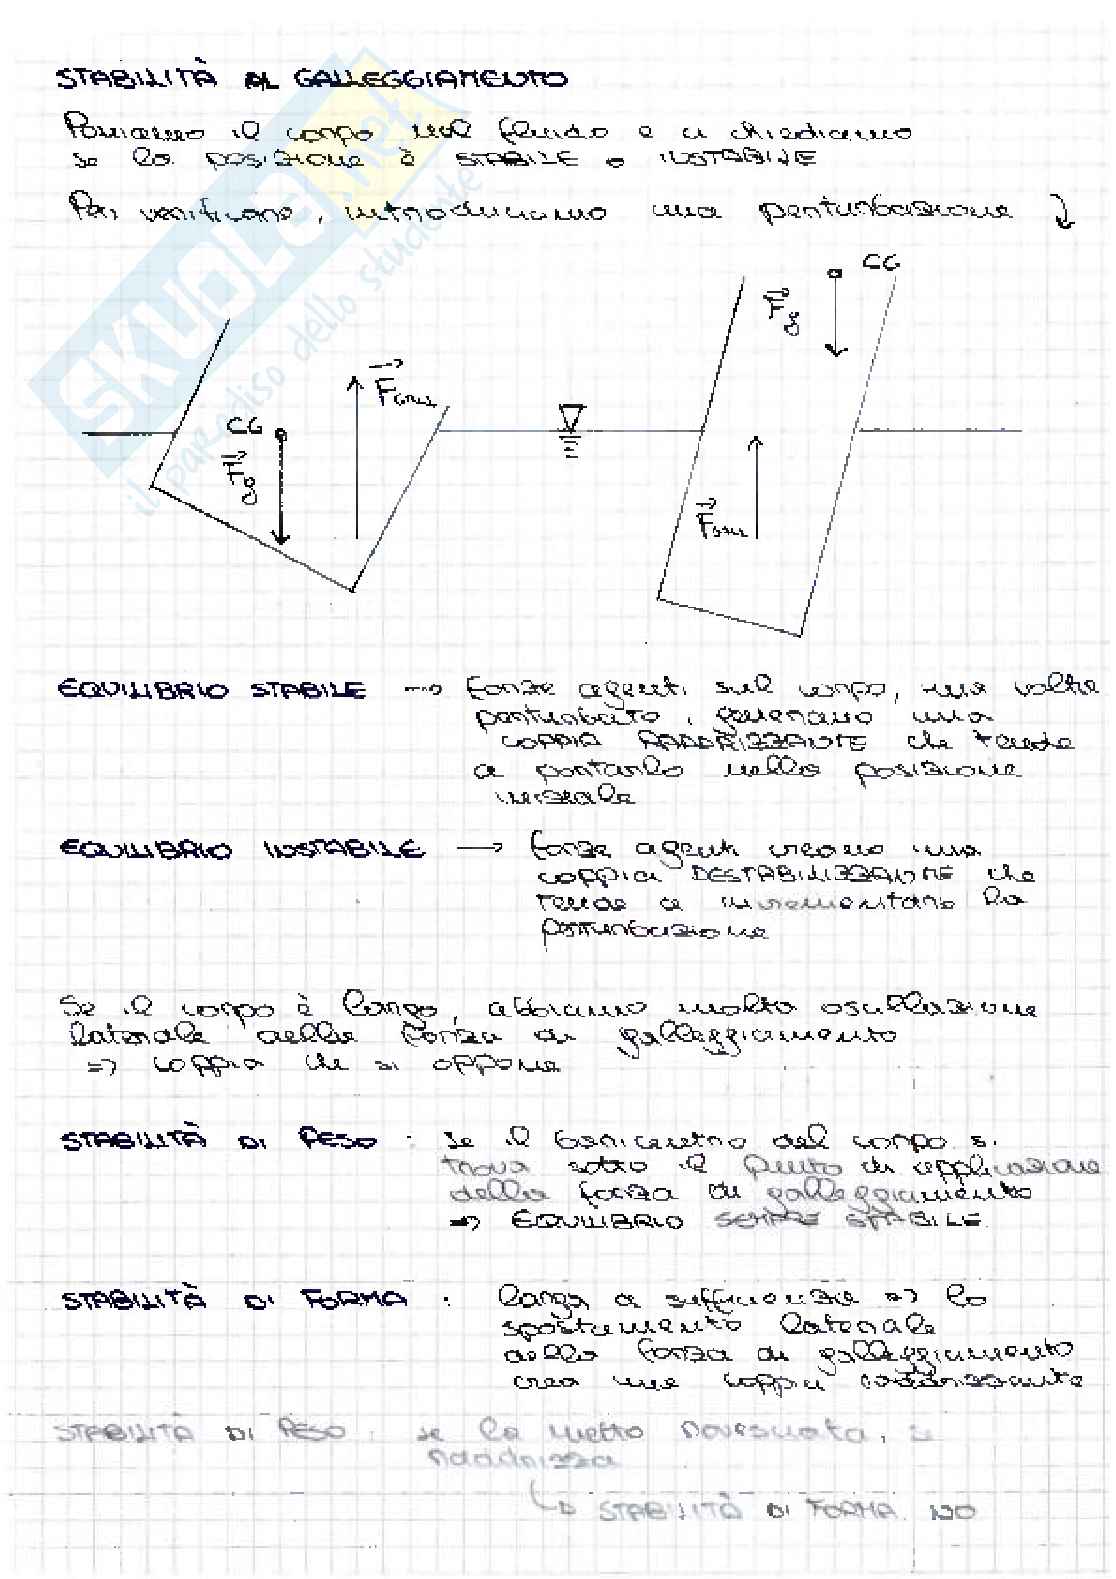 STABILITÀ AL GALLEGGIAMENTO
Poniamo il corpo nel fluido e ci chiediamo
se la POSIZIONE è STABILE o INSTABILE
Per verificare, introduciamo una perturbazione
CG
Fg
CG
Fg
EQUILIBRIO STABILE → forze agenti sul corpo, una volta
perturbato, generano una
COPPIA RADDRIZZANTE che tende
a portarlo nella posizione
iniziale
EQUILIBRIO INSTABILE → forze agenti creano una
coppia DESTABILIZZANTE che
tende a incrementare la
perturbazione
Se il corpo è largo, abbiamo molta oscillazione
laterale della forza di galleggiamento
=> coppia che si oppone
STABILITÀ DI PESO : se il baricentro del corpo si
trova sotto il punto di applicazione
della forza di galleggiamento
=> EQUILIBRIO SEMPRE STABILE
STABILITÀ DI FORMA : larga a sufficienza => lo
spostamento laterale
della forza di galleggiamento
crea una coppia raddrizzante
STABILITÀ DI PESO : se la metto rovesciata, si
raddrizza
↳ STABILITÀ DI FORMA NO
SKUOLA.net
il paradiso dello studente